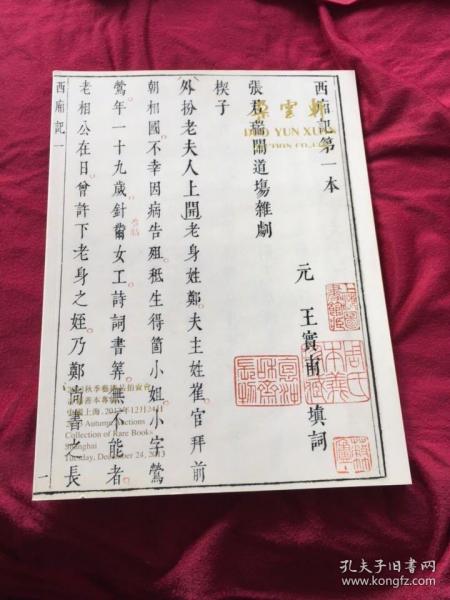 西廂記第一本
張君瑞鬧道塲雜劇
元 王實甫 填詞
楔子
外扮老夫人上開老身姓鄭夫主姓崔官拜前
朝相國不幸因病告殂秪生得箇小姐小字鶯
鶯年一十九歲針黹女工詩詞書筭無不能者
老相公在日曾許下老身之姪乃鄭尚書之長
西廂記一
一
朵雲軒
DUO YUN XUAN
AUCTION CO.,LTD
秋季藝術品拍賣會
中國上海·2013年12月24日
2013 Autumn Auctions
Collection of Rare Books
Shanghai
Tuesday, December 24, 2013
孔夫子旧书网
www.kongfz.com